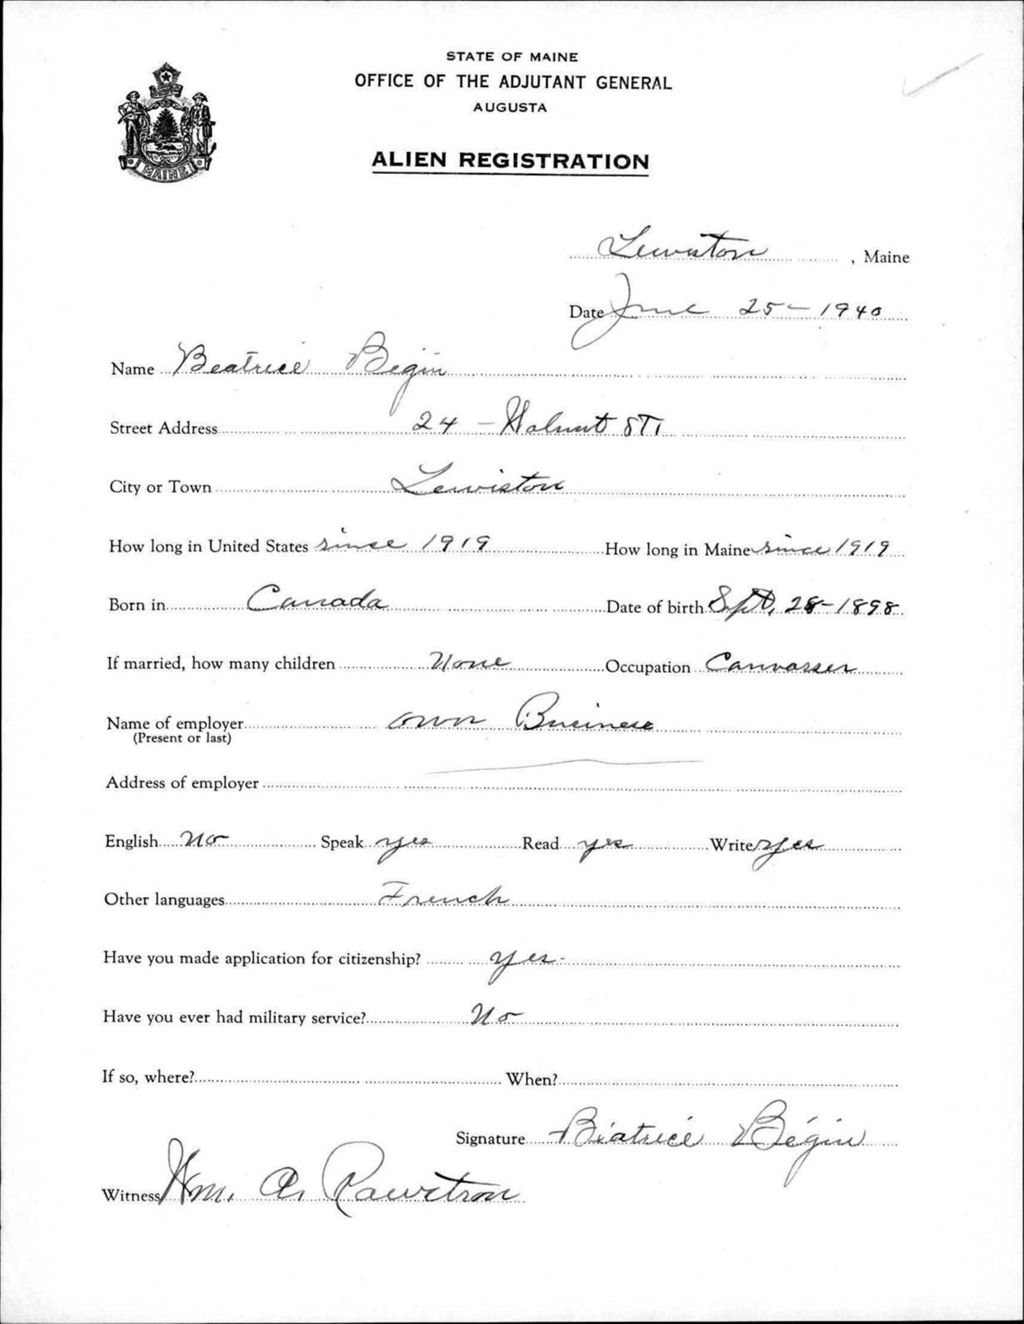 STATE OF MAINE
OFFICE OF THE ADJUTANT GENERAL
AUGUSTA
MAINE
ALIEN REGISTRATION
Lewiston, Maine
Date June 25-1940
Name Beatrice Begin
Street Address 24 - Walnut St.
City or Town Lewiston
How long in United States since 1919 How long in Maine since 1919
Born in Canada Date of birth Sept, 28-1898
If married, how many children None Occupation Canvasser
Name of employer own Business
(Present or last)
Address of employer
English No Speak yes Read yes Write yes
Other languages French
Have you made application for citizenship? yes-
Have you ever had military service? No
If so, where? When?
Signature Béatrice Bégin
Witness Wm. A.